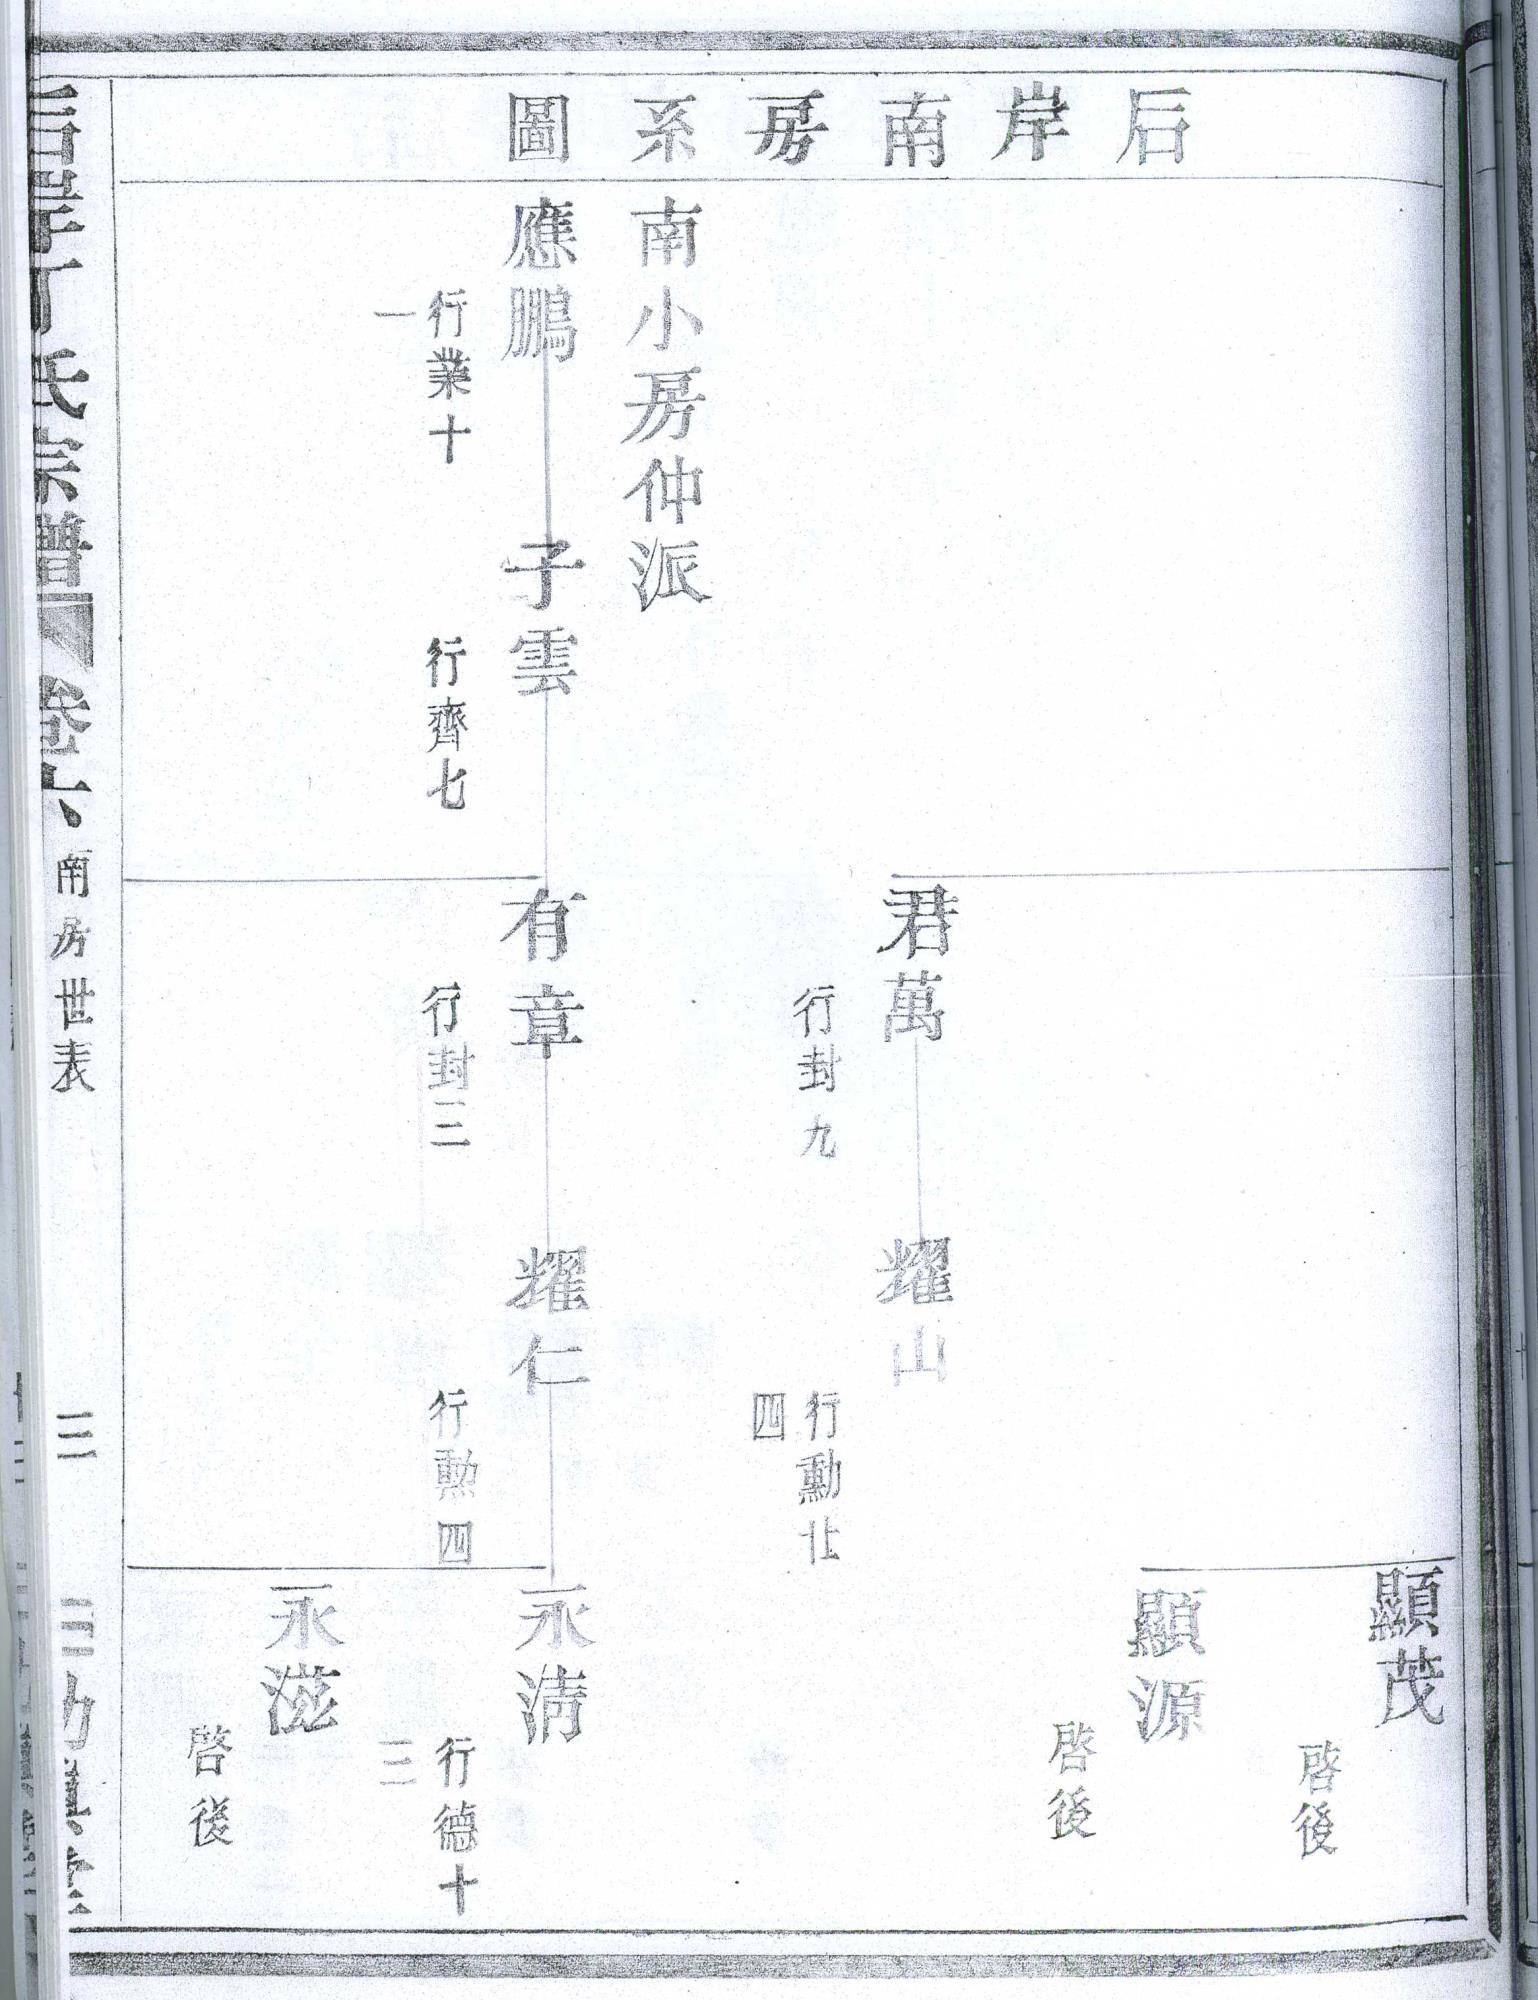 后岸南房系圖
顯茂
啓後
顯源
啓後
君萬
行封九
耀山
行勳廿
四
南小房仲派
應鵬
行業十
一
子雲
行齊七
有章
行封三
耀仁
行勲四
永淸
行德十
三
永滋
啓後
后岸丁氏宗譜
卷六
南房世表
三